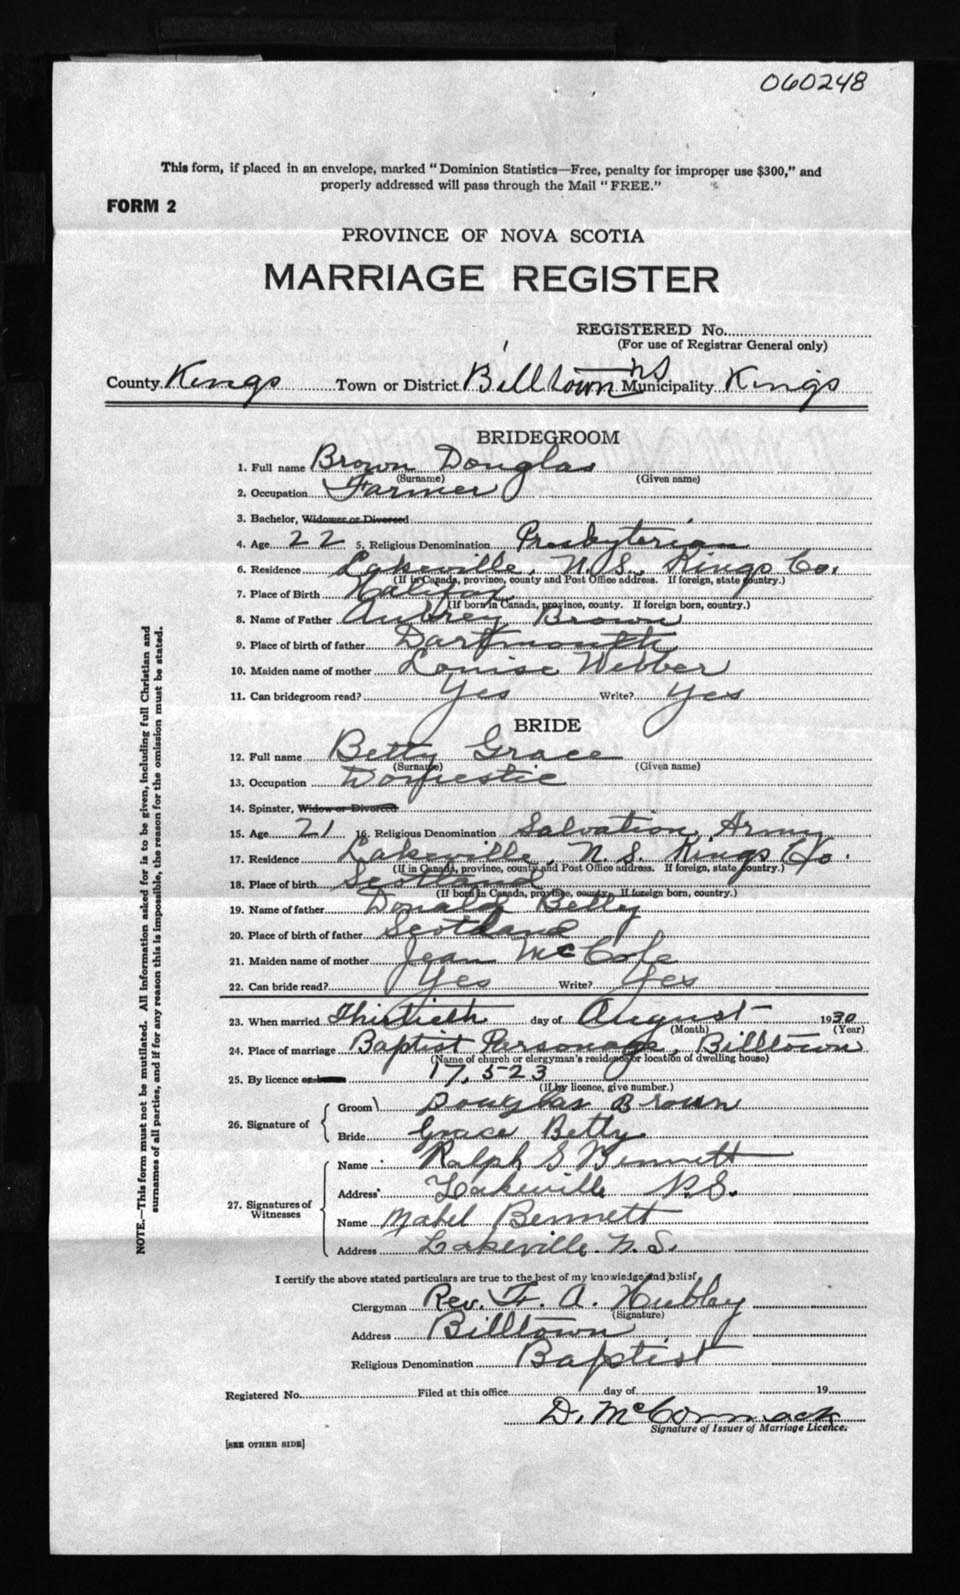 060248
This form, if placed in an envelope, marked "Dominion Statistics—Free, penalty for improper use $300," and
properly addressed will pass through the Mail "FREE."
FORM 2
PROVINCE OF NOVA SCOTIA
MARRIAGE REGISTER
REGISTERED No.
(For use of Registrar General only)
County Kings Town or District Billtown NS Municipality Kings
BRIDEGROOM
1. Full name Brown Douglas
(Surname) (Given name)
2. Occupation Farmer
3. Bachelor, Widower or Divorced
4. Age 22 5. Religious Denomination Presbyterian
6. Residence Lakeville, N.S., Kings Co.
(If in Canada, province, county and Post Office address. If foreign, state country.)
7. Place of Birth Halifax
(If born in Canada, province, county. If foreign born, country.)
8. Name of Father Aubrey Brown
9. Place of birth of father Dartmouth
10. Maiden name of mother Louise Webber
11. Can bridegroom read? Yes Write? Yes
BRIDE
12. Full name Betty Grace
(Surname) (Given name)
13. Occupation Domestic
14. Spinster, Widow or Divorced
15. Age 21 16. Religious Denomination Salvation Army
17. Residence Lakeville, N.S. Kings Co.
(If in Canada, province, county and Post Office address. If foreign, state country.)
18. Place of birth Scotland
(If born in Canada, province, county. If foreign born, country.)
19. Name of father Donald Betty
20. Place of birth of father Scotland
21. Maiden name of mother Jean McCole
22. Can bride read? Yes Write? Yes
23. When married Thirtieth day of August 1930
(Month) (Year)
24. Place of marriage Baptist Parsonage, Billtown
(Name of church or clergyman's residence or location of dwelling house)
25. By licence or banns 17,523
(If by licence, give number.)
26. Signature of Groom Douglas Brown
Bride Grace Betty
27. Signatures of Witnesses
Name Ralph G Bennett
Address Lakeville N.S.
Name Mabel Bennett
Address Lakeville N.S.
I certify the above stated particulars are true to the best of my knowledge and belief
Clergyman Rev. Fr. A. Hubley
(Signature)
Address Billtown
Religious Denomination Baptist
Registered No. Filed at this office day of 19
D. McCormack
Signature of Issuer of Marriage Licence.
[SEE OTHER SIDE]
NOTE.—This form must not be mutilated. All information asked for is to be given, including full Christian and
surnames of all parties, and if for any reason this is impossible, the reason for the omission must be stated.